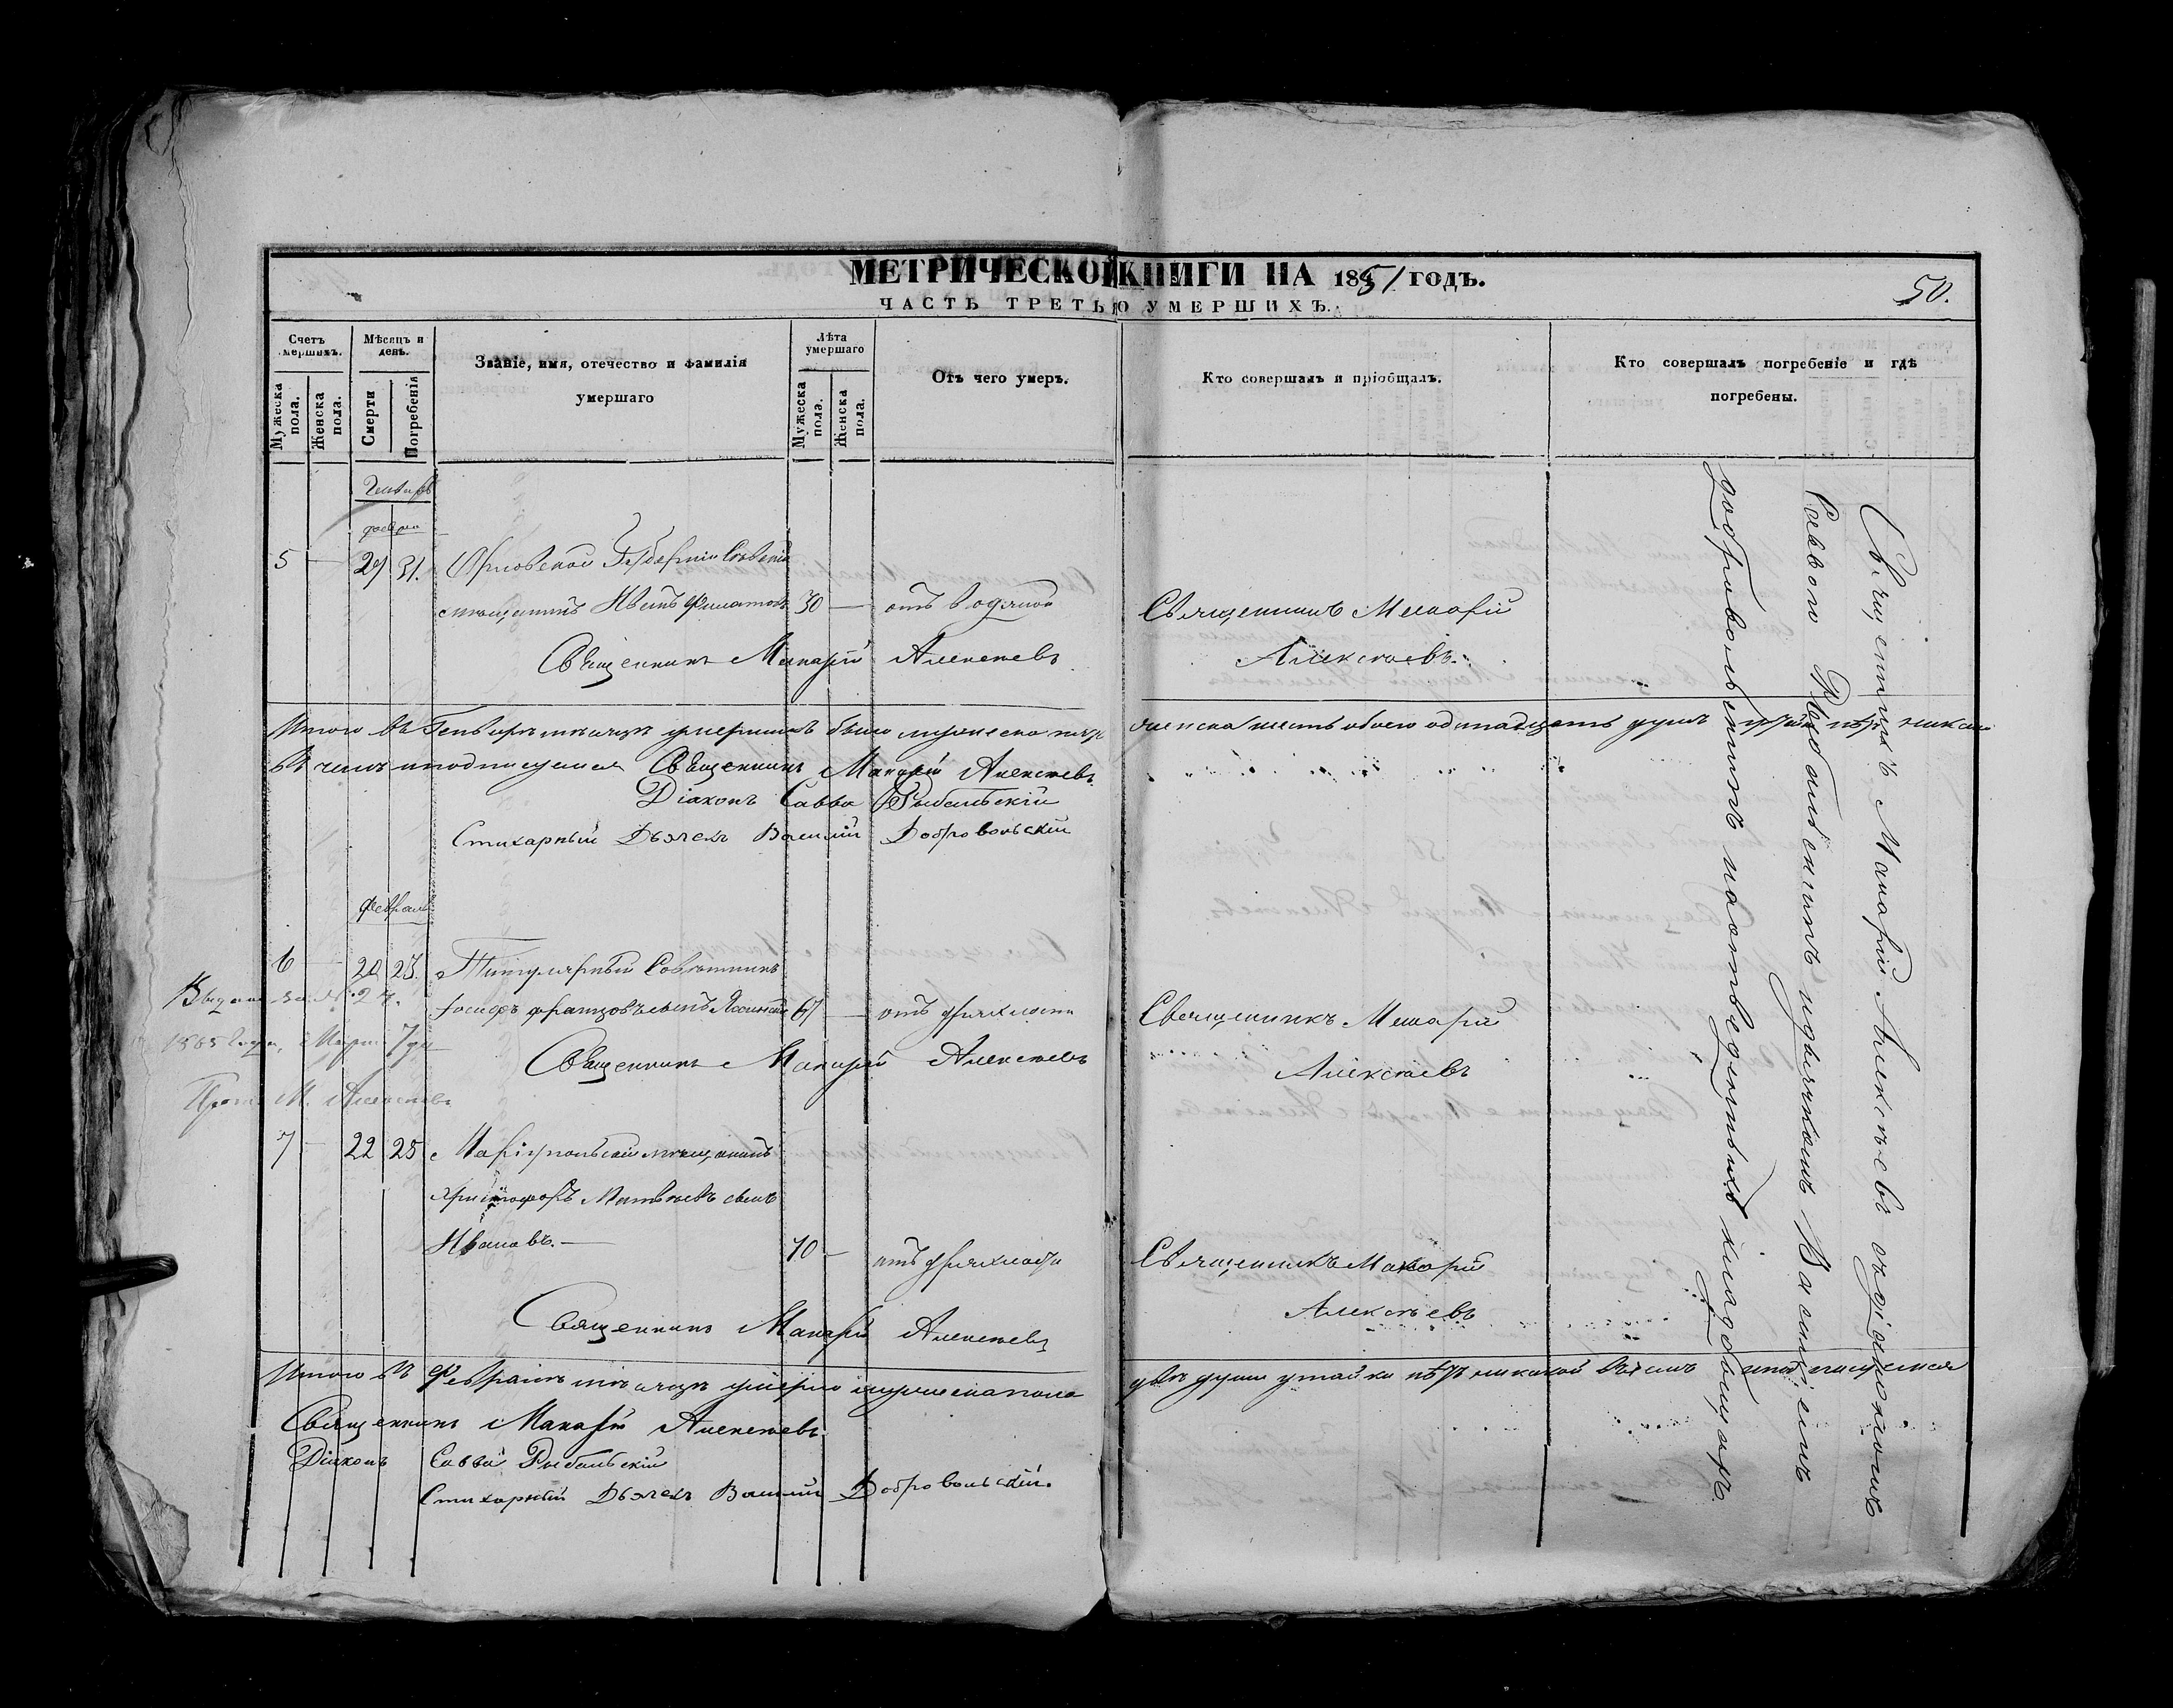 МЕТРИЧЕСКОЙ КНИГИ НА 1851 ГОДЪ.
50.
ЧАСТЬ ТРЕТЬЯ О УМЕРШИХЪ.
Счетъ умершихъ.
Мужеска пола.
Женска пола.
Мѣсяцъ и день.
Смерти
Погребенія
Званіе, имя, отечество и фамилія умершаго
Лѣта умершаго
Мужеска пола.
Женска пола.
Отъ чего умеръ.
Кто совершалъ и пріобщалъ.
Кто совершалъ погребеніе и гдѣ погребены.
Генварь
5 — 29 31. Орловской Губерніи
мещанинъ Иванъ Филатовъ 30 — отъ водяной
Священникъ Макарій
Алексѣевъ.
Священникъ Макарій Алексѣевъ
Итого въ Генварѣ мѣсяцѣ умершихъ было мужеска пять женска шесть обоего одинадцать душъ утайки нѣтъ никакой
Въ чемъ и подписуемся Священникъ Макарій Алексѣевъ.
Діаконъ Савва Рыбальскій
Стихарный Дьячекъ Василій Добровольскій
Февраль
6 — 20 23. Титулярный Совѣтникъ
Іосифъ Францовъ сынъ 67 — отъ дряхлости
Священникъ Макарій
Алексѣевъ
Священникъ Макарій Алексѣевъ
за № 27.
1865 года, Марта 7 дня
Прот. М. Алексѣевъ
7 — 22 25 Маріупольскій мѣщанинъ
Христофоръ Матвѣевъ сынъ
Ивановъ. — 70 — отъ дряхлости
Священникъ Макарій
Алексѣевъ
Священникъ Макарій Алексѣевъ
Итого въ Февралѣ мѣсяцѣ умерло мужеска пола двѣ души утайки нѣтъ никакой въ чемъ и подписуемся
Священникъ Макарій Алексѣевъ
Діаконъ Савва Рыбальскій
Стихарный Дьячекъ Василій Добровольскій.
Священникъ Макарій Алексѣевъ съ діакономъ
Саввою Рыбальскимъ и дьячкомъ Василіемъ
Добровольскимъ на отведенныхъ кладбищахъ.